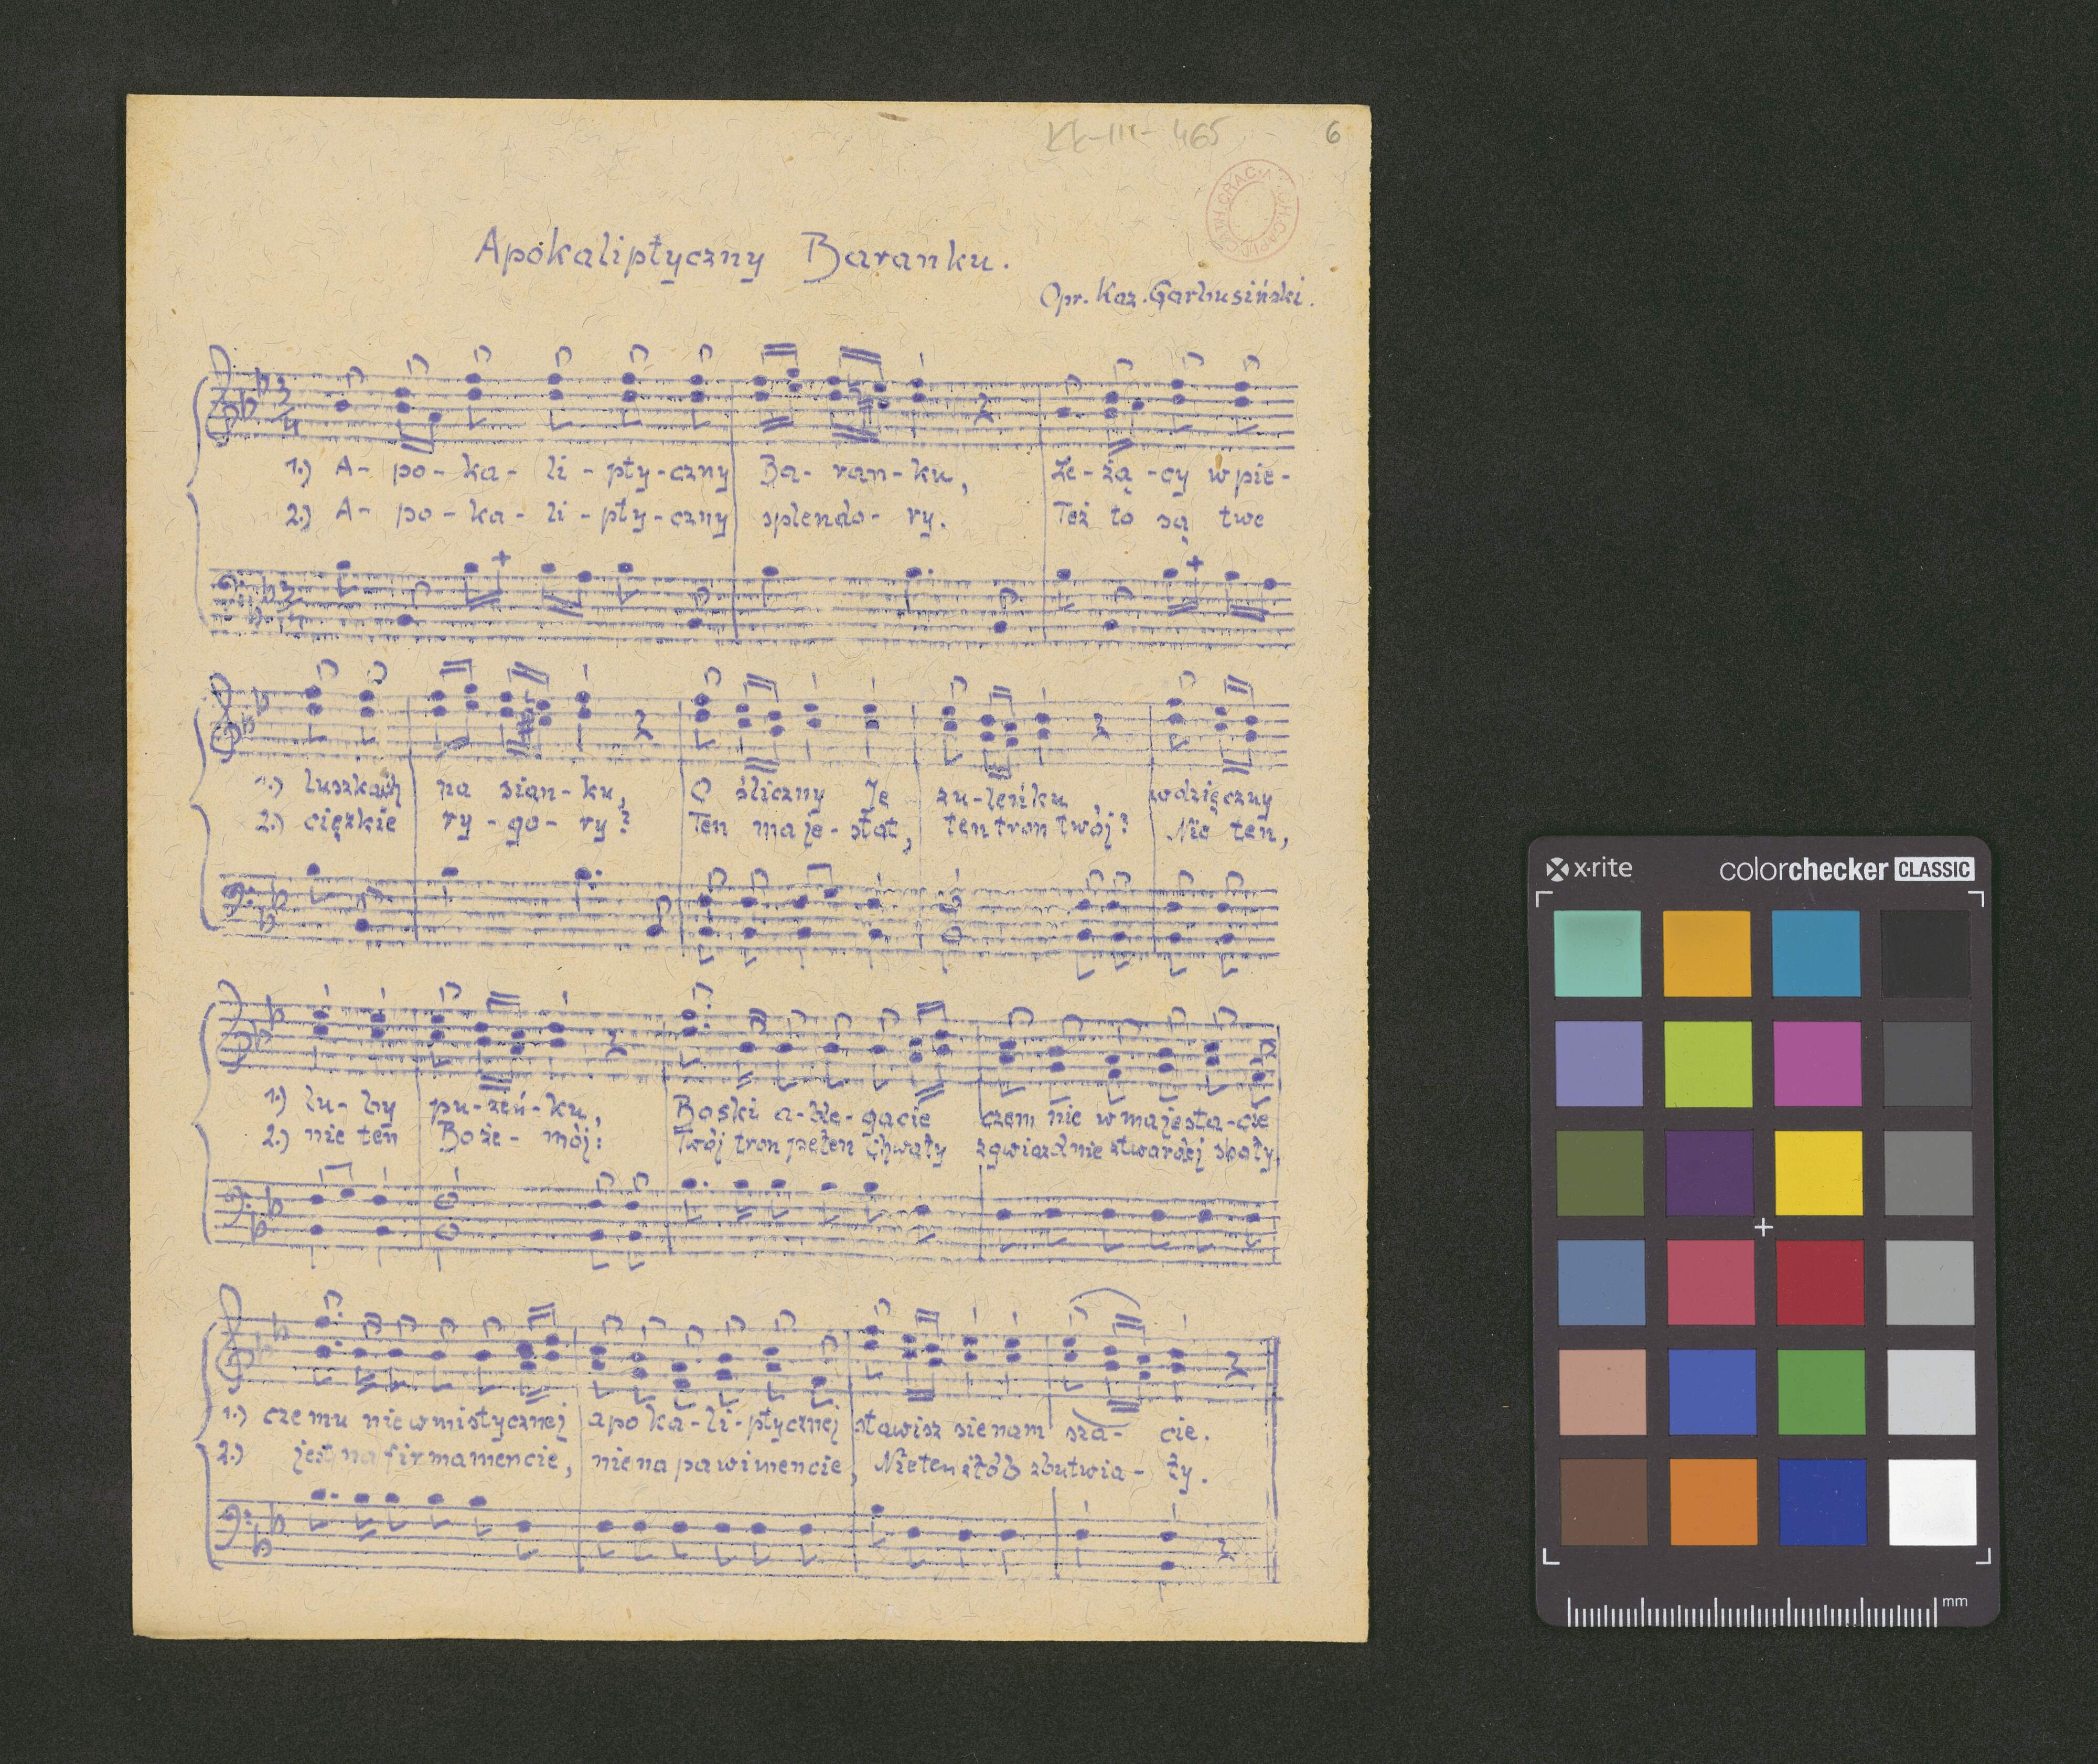 KK-III-465
6
Apokaliptyczny Baranku.
Opr. Kaz. Garbusiński.
1.) A- po- ka- li- pty-czny Ba- ran-ku, Le-żą-cy w pie-
2.) A- po- ka- li- pty-czny splendo- ry. Też to są twe
1.) luszkach na sian-ku, O śliczny Je zu-leńku wdzięczny
2.) ciężkie ry-go-ry? Ten maje-stat, ten tron twój? Nie ten,
1.) lu-by pu-zeń-ku, Boski a-ble-gacie czem nie w majesta-cie
2.) nie ten Boże- mój: Twój tron pełen Chwały z gwiazd nie stwardej skały,
1.) czemu nie w mistycznej apo ka-li-ptycznej stawisz sie nam sza- cie.
2.) jest na firmamencie, nie na pawimencie, Nie ten żłób zbutwia- ły.
x·rite colorchecker CLASSIC
mm